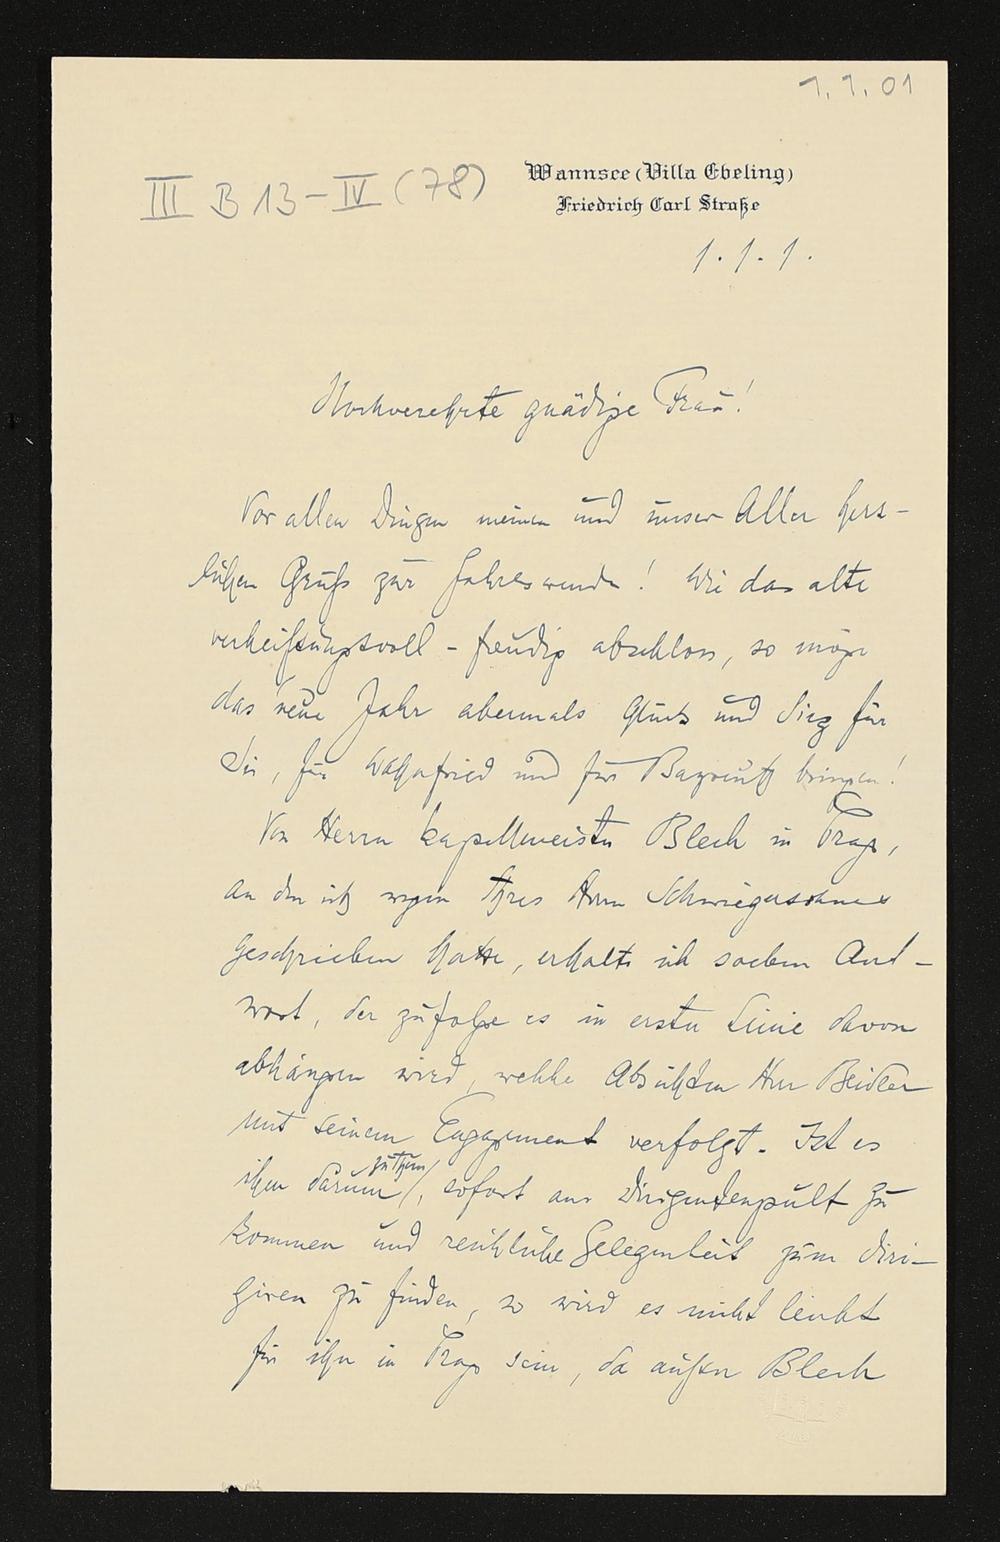 1. 1. 01
III B 13 - IV (78)
Wannsee (Villa Ebeling)
Friedrich Carl Straße
1. 1. 1.
Hochverehrte gnädige Frau!
Vor allen Dingen meinen und unser Aller herz-
lichen Gruß zur Jahreswende! Wie das alte
verheißungsvoll - freudig abschloss, so möge
das neue Jahr abermals Glück und Sieg für
Sie, für Wahnfried und für Bayreuth bringen!
Von Herrn Kapellmeister Blech in Prag,
an den ich wegen Ihres Herrn Schwiegersohnes
geschrieben hatte, erhalte ich soeben Ant-
wort, der zufolge es in erster Linie davon
abhängen wird, welche Absichten Herr Beidler
mit seinem Engagement verfolgt. Ist es
ihm darum zu thun, sofort ans Dirigentenpult zu
kommen und reichliche Gelegenheit zum diri-
giren zu finden, so wird es nicht leicht
für ihn in Prag sein, da außer Blech